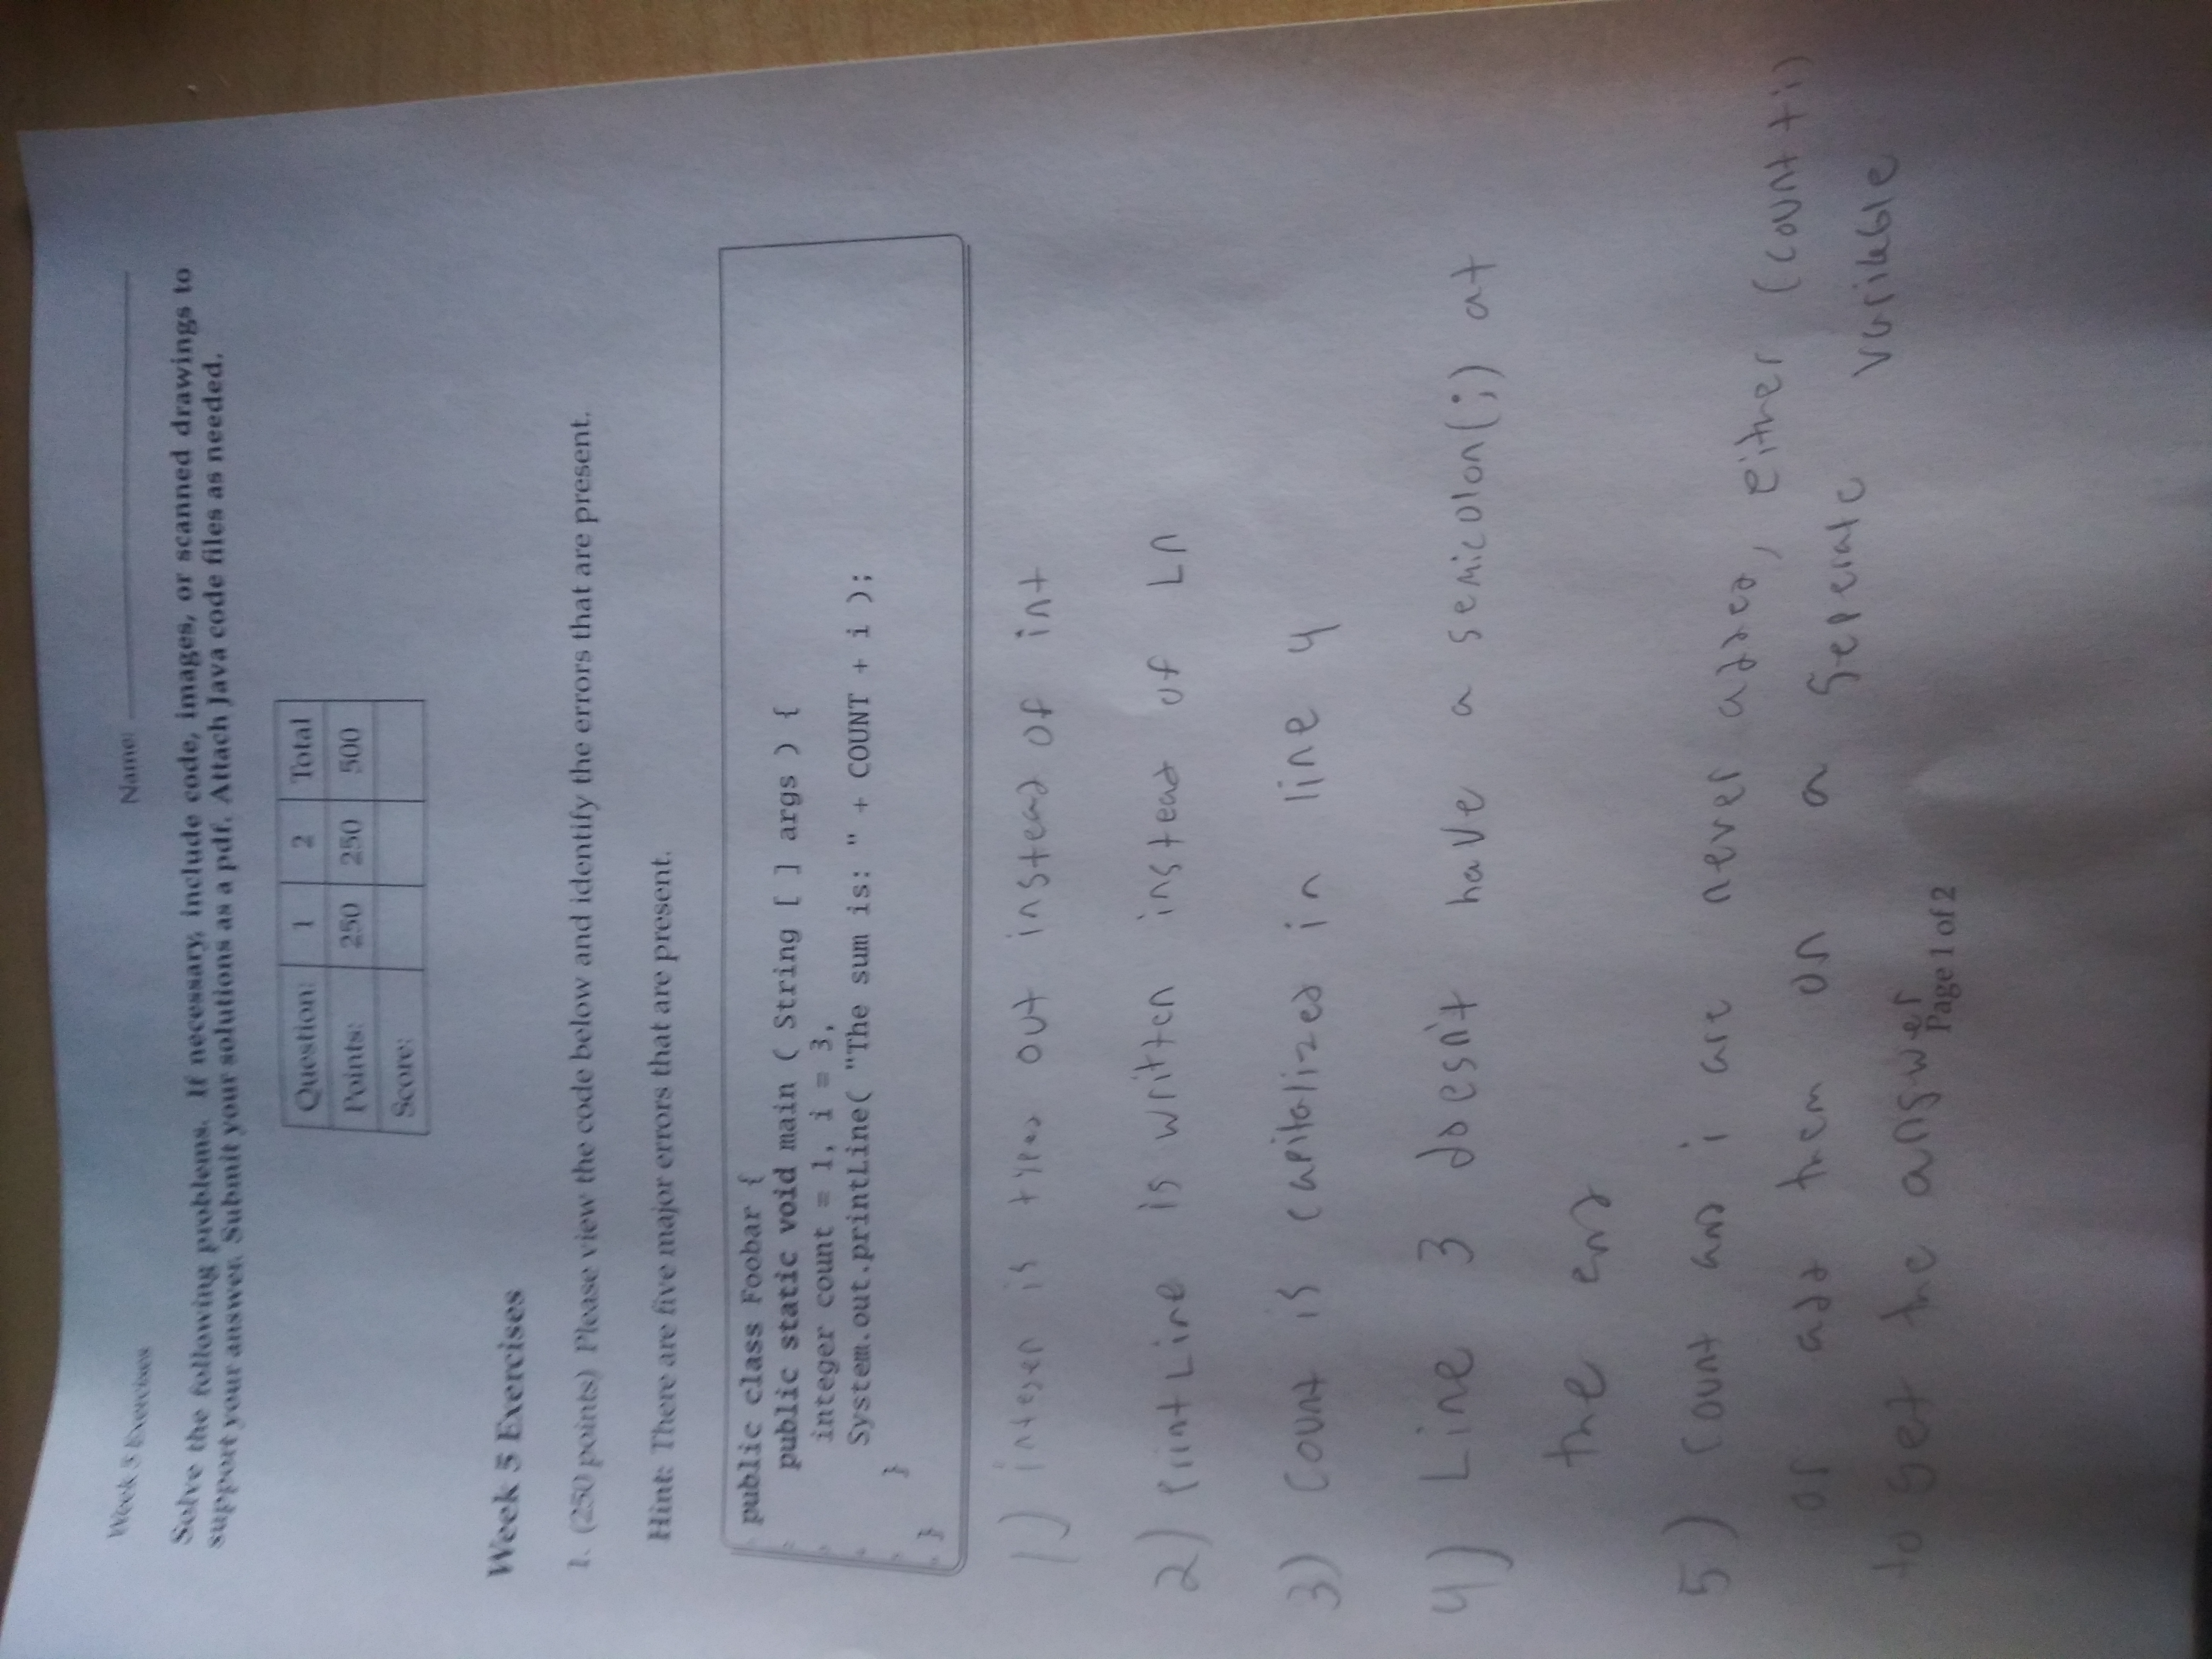 Week 5 Exercises
Name:
Solve the following problems. If necessary, include code, images, or scanned drawings to
support your answer. Submit your solutions as a pdf. Attach Java code files as needed.
Question: 1 2 Total
Points: 250 250 500
Score:
Week 5 Exercises
1. (250 points) Please view the code below and identify the errors that are present.
Hint: There are five major errors that are present.
public class Foobar {
public static void main ( String [ ] args ) {
integer count = 1, i = 3,
System.out.printLine( "The sum is: " + COUNT + i );
}
}
1) integer is typed out instead of int
2) PrintLine is written instead of Ln
3) Count is capitalized in line 4
4) Line 3 doesn't have a semicolon(;) at
the end
5) Count and i are never added, either (count + i)
or add them on a Seperate variable
to get the answer
Page 1 of 2